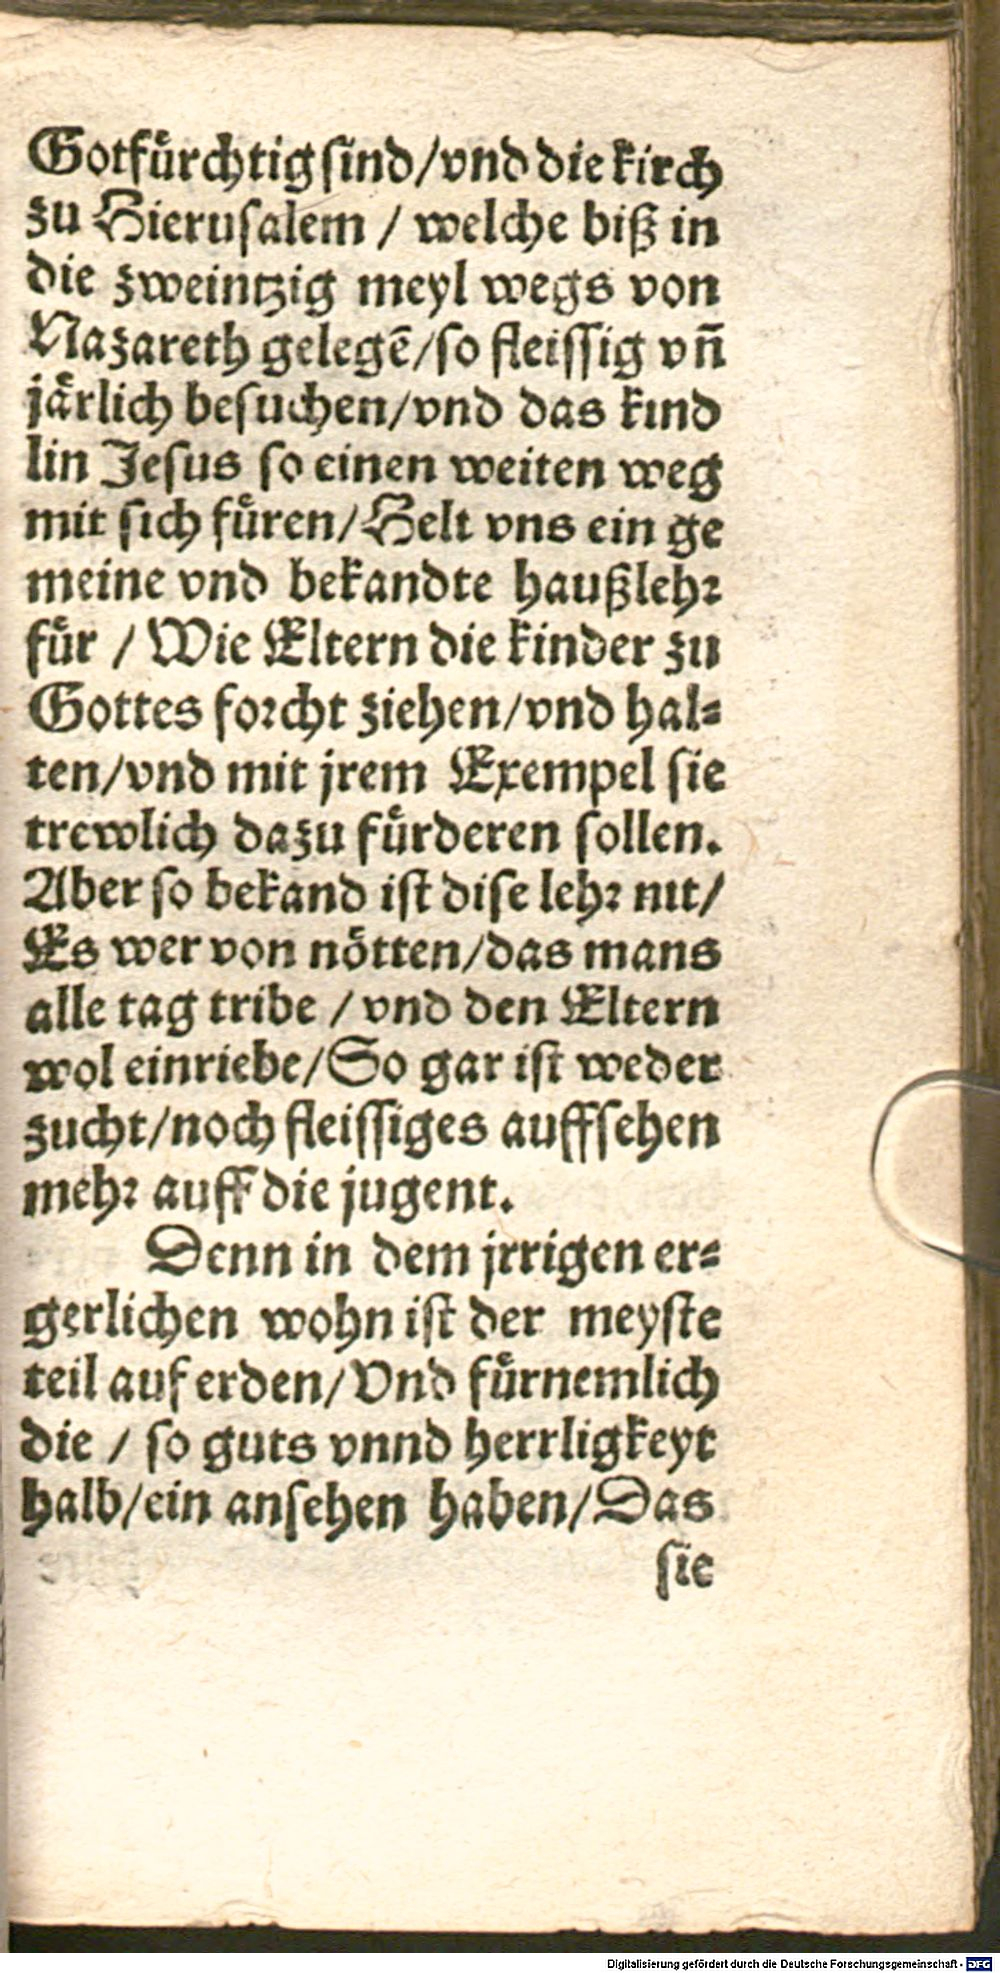 Gotfuͤrchtig ſind/vnd die kirch
zu Hieruſalem / welche biß in
die zweintzig meyl wegs von
Nazareth gelegē/ſo fleiſſig vn̄
jaͤrlich beſuchen/vnd das kind
lin Jeſus ſo einen weiten weg
mit ſich fuͤren/Helt vns ein ge
meine vnd bekandte haußlehꝛ
fuͤr / Wie Eltern die kinder zu
Gottes foꝛcht ziehen/vnd hal⸗
ten/vnd mit jrem Exempel ſie
trewlich dazu fuͤrderen ſollen.
Aber ſo bekand iſt diſe lehꝛ nit/
Es wer von noͤtten/das mans
alle tag tribe / vnd den Eltern
wol einriebe/So gar iſt weder
zucht/noch fleiſſiges auffſehen
mehꝛ auff die jugent.
Denn in dem jrrigen er⸗
gerlichen wohn iſt der meyſte
teil auf erden/Vnd fuͤrnemlich
die / ſo guts vnnd herrligkeyt
halb/ein anſehen haben/Das
ſie
Digitalisierung gefördert durch die Deutsche Forschungsgemeinschaft - DFG